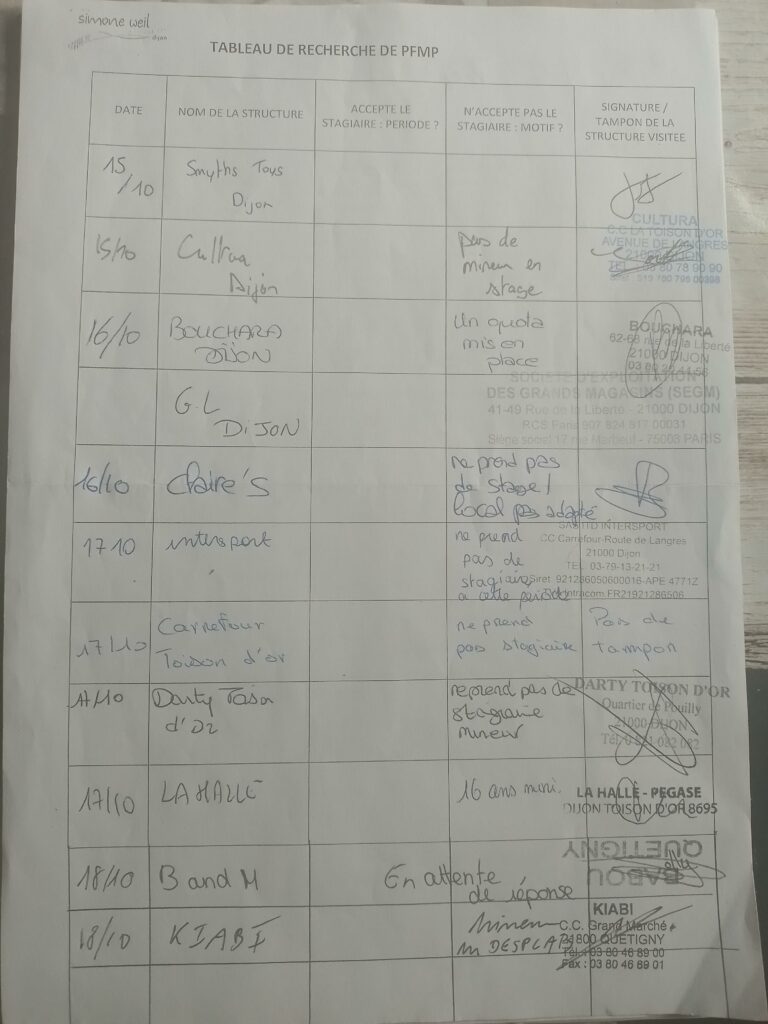 simone weil
dijon
TABLEAU DE RECHERCHE DE PFMP
DATE
NOM DE LA STRUCTURE
ACCEPTE LE
STAGIAIRE : PERIODE ?
N'ACCEPTE PAS LE
STAGIAIRE : MOTIF ?
SIGNATURE /
TAMPON DE LA
STRUCTURE VISITEE
15
/10
Smyths Toys
Dijon
15/10
Cultura
Dijon
pas de
mineur en
stage
CULTURA
C.C LA TOISON D'OR
AVENUE DE LANGRES
21000 DIJON
TEL : 03 80 78 90 90
16/10
BOUCHARA
DIJON
Un quota
mis en
place
BOUCHARA
62-68 rue de la Liberté
21000 DIJON
G.L
DIJON
SOCIETE D'EXPLOITATION
DES GRANDS MAGASINS (SEGM)
41-49 Rue de la Liberté - 21000 DIJON
RCS Paris 907 824 817 00031
Siège social 17 rue - 75008 PARIS
16/10
Claire's
ne prend pas
de stage /
local pas adapté
17 10
intersport
ne prend
pas de
stagiaire
a cette periode
INTERSPORT
CC Carrefour-Route de Langres
21000 Dijon
TEL 03-79-13-21-21
Siret 921286050600016-APE 4771Z
Intracom FR21921286506
17/10
Carrefour
Toison d'or
ne prend
pas stagiaire
Pas de
tampon
17/10
Darty Toison
d'Or
ne prend pas de
stagiaire
mineur
DARTY TOISON D'OR
Quartier de Pouilly
21000 DIJON
17/10
LA HALLE
16 ans mini.
LA HALLE - PEGASE
DIJON TOISON D'OR 8695
18/10
B and M
En attente
de réponse
QUETIGNY
BABOU
18/10
KIABI
Mineur
KIABI
C.C. Grand Marché
21800 QUETIGNY
Tél. : 03 80 46 89 00
Fax : 03 80 46 89 01